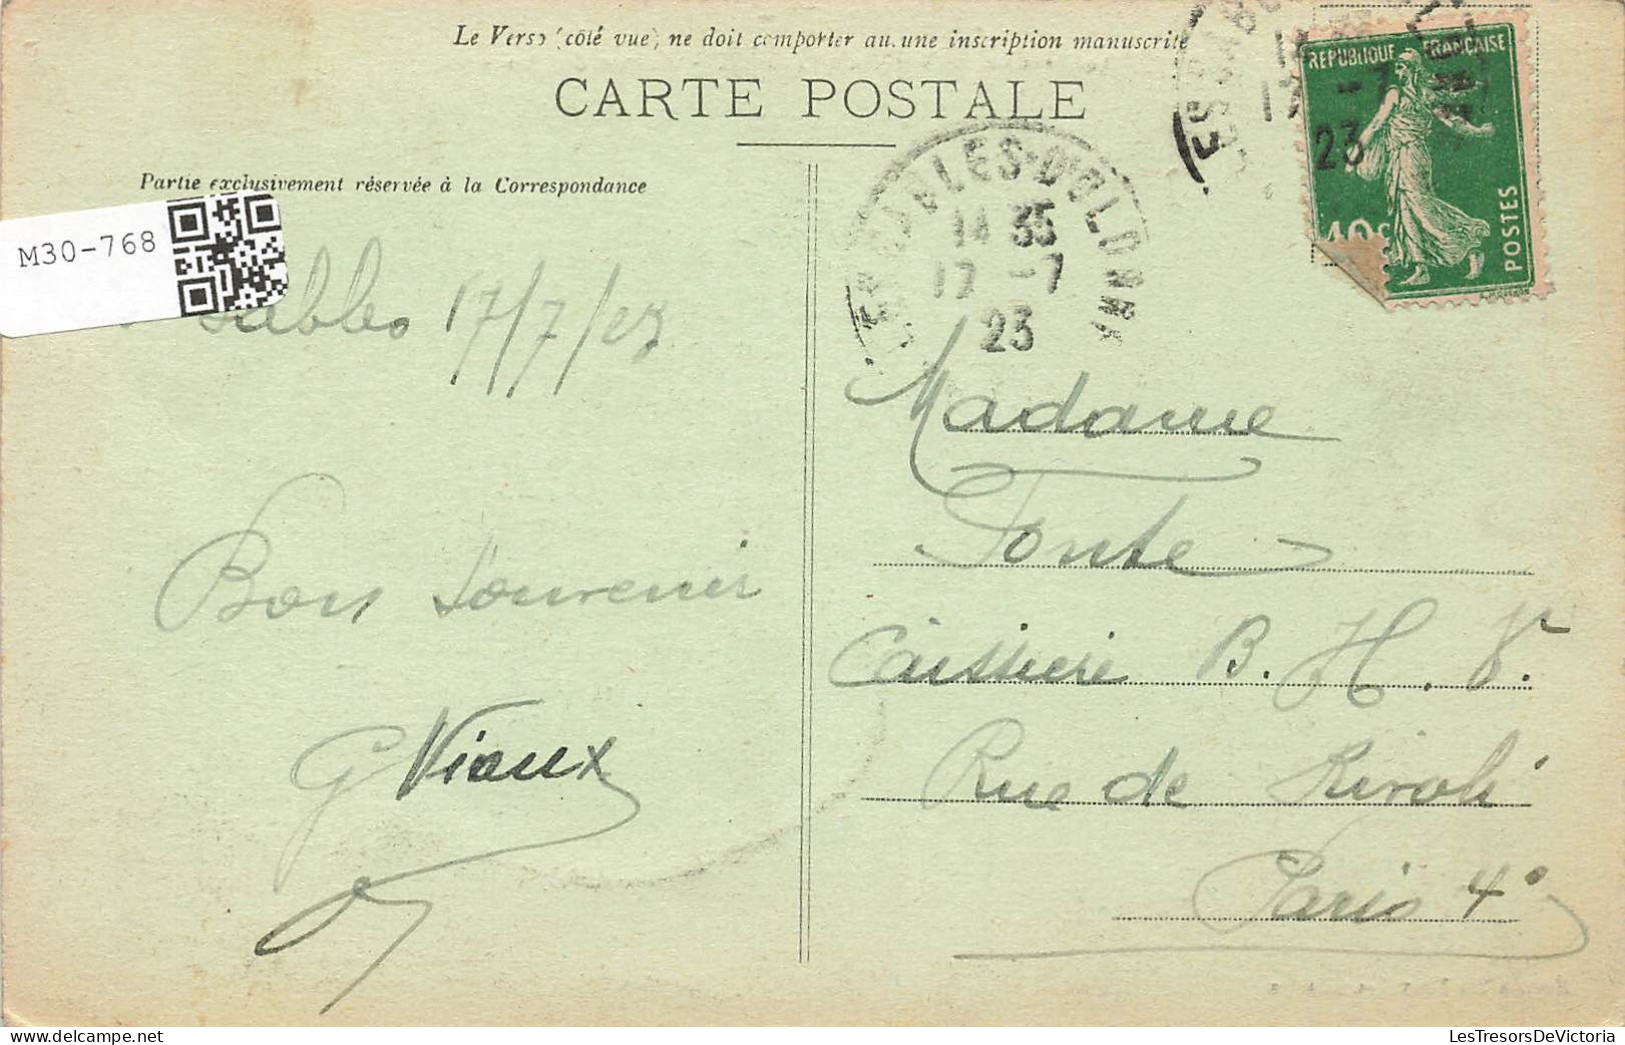 Le Verso (côté vue) ne doit comporter aucune inscription manuscrite
CARTE POSTALE
Partie exclusivement réservée à la Correspondance
M30-768
Sables 17/7/23
Bon Souvenir
G Viaux
LES SABLES-D'OLONNE
14 35
17 -7
23
17 -7
23
REPUBLIQUE FRANÇAISE
10c
POSTES
Madame
Ponte
Caissiere B. H. V.
Rue de Rivoli
Paris 4°
LesTresorsDeVictoria
delcampe.net